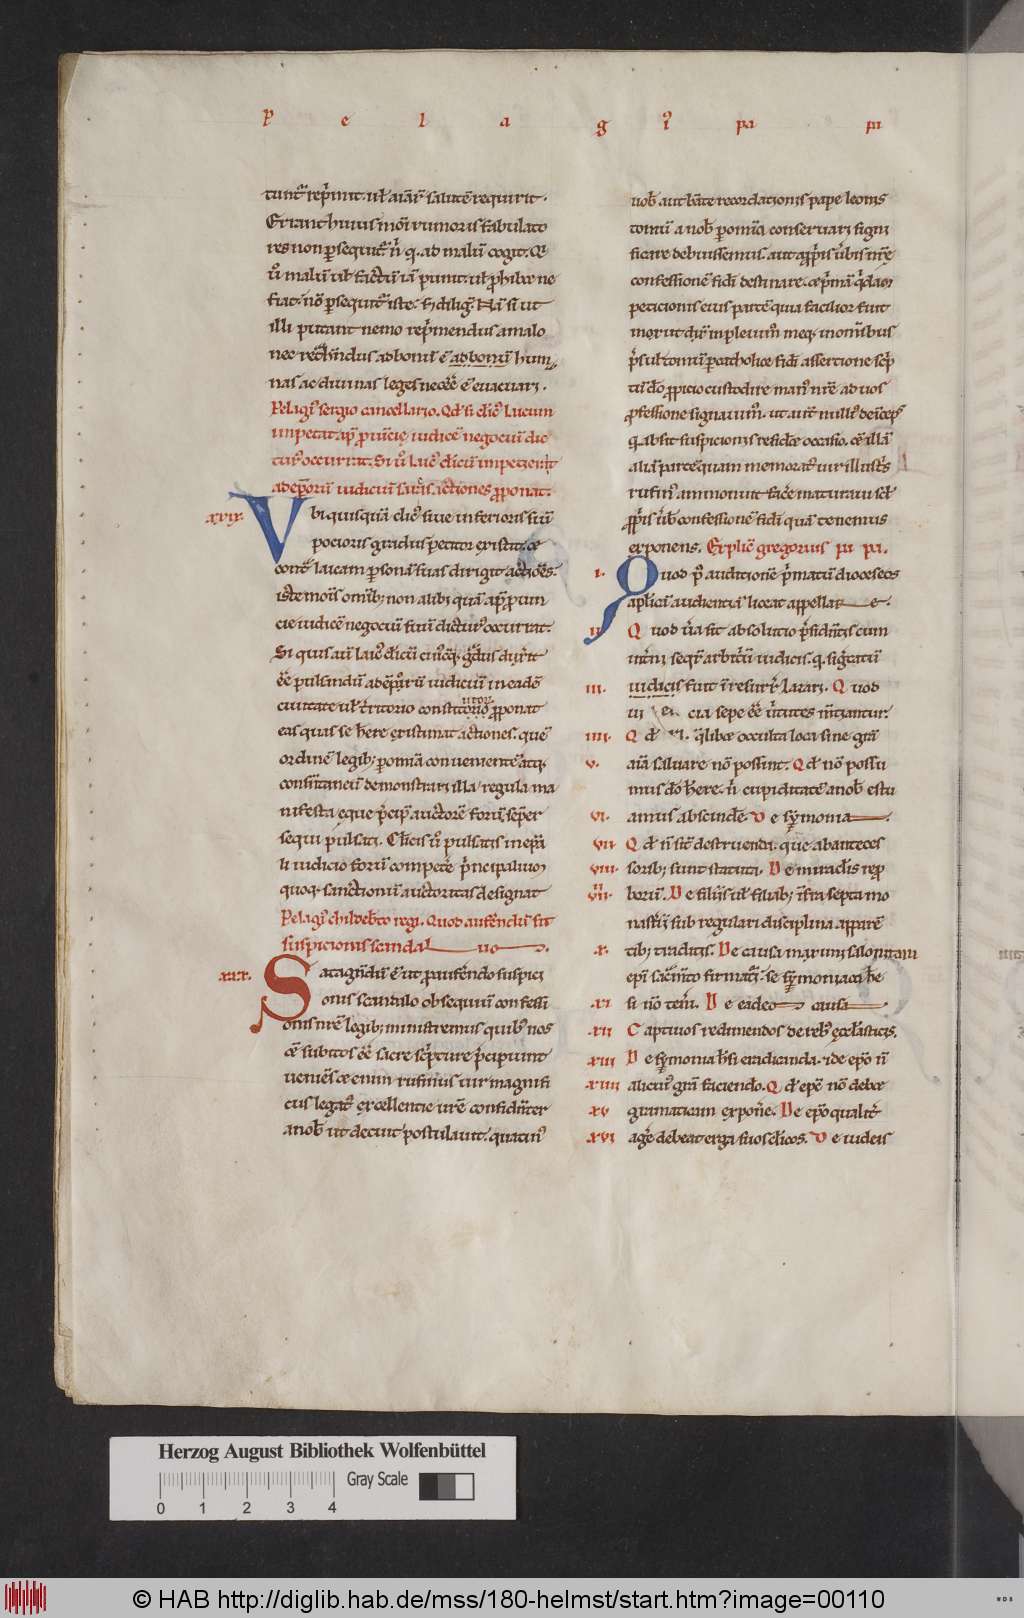 P e l a g i' pa pı
tunt͛ rep̓mit. ul̓ aīaꝝ salutē requirit.
Errant huius mōi rumoris fabulato
res non ꝑsequit͛ n̄ q̓ ad malū cogit. Qı
ū malū ul̓ factū iā punit. ul̓ ꝓhibet ne
fiat. nō ꝑsequit͛ iste. sꝫ diligit. Nā si ut
illi putant nemo rep̓mendus a malo
nec ret͛hendus ad bonū ē ad bonū huma
nas ac diuinas leges necēē ē euacuari.
Pelagiꝰ sergio cancellario. Qd̓ si cl̓icꝰ laicum
impetat aꝑ ꝓuīcie iudicē negociū dic
turꝰ occurrat. Si ū laicꝰ cl̓icū impetierit
ad ep̄orū iudiciū suas actiones ꝓponat.
xxix. Vbi quisquā cl̓icꝰ siue inferioris siue
pocioris gradus petitor existit. et
contͣ laicam ꝑsonā suas dirigit actiōes.
iste mōis omībꝫ non alibi quā aꝑ ꝓuin
cie iudicē negociū suū dicturꝰ occurrat.
Si quis aū laicꝰ cl̓icū cuiuscūqꝫ gͣdus duxͥit
ēē pulsandū ad ep̄orū iudiciū in eadē
ciuitate ul̓ t̓ritorio constitutorū ꝓponat
eas quas se hēre existimat actiones. quē
ordinē legibꝫ ꝑ omīa conuenientē atqꝫ
consn̄taneū demonstrari illa regula ma
nifesta eque p̓cipit auctorē forū sēper
sequi pulsati. Cl̓icis ū pulsatis in ep̄a
li iudicio forū competͤe p̓ncipaliuꝫ
quoqꝫ sanctionū auctoritas designat
Pelagiꝰ childeb̓to regi. Quod auferēdū sit
suspicionis scandal uꝫ.
xxx. Satagendū ē ut ꝓ auferendo suspici
onis scandalo obsequiū confessi
onis nr̄e legibꝫ ministremus quibꝰ nos
etiā subditos ēē sacre sc̓pture p̓cipiunt
ueniēs etenim rufinus uir magnifi
cus legatꝰ excellentie ur̄e confident̓
a nob̓ ut decuit postulauit. quatinꝰ
uob̓ aut bāte recordationis pape leonis
tomū a nob̓ ꝑ omīa conseruari signi
ficare debuissemus. aut ꝓp̓is ūbis nr̄ę
confessionē fidei destinare. et p̓mā q̓dam
peticionis eius partē quia facilior fuit
mox ut dix̓ impleuimꝰ meqꝫ in omībus
p̓sul̓ tomū ꝑ catholice fidei assertione sc̓p
tū dō ꝓpicio custodire manu nr̄e ad uos
ꝓfessione signauimꝰ. ut autͤ nullꝰ deīcepˢ
q̓ absit suspicionis resideͤt occasio. etiā illā
aliā partē quam memoratꝰ uir illustris
rufinꝰ ammonuit faceͤ maturaui scil̓
ꝓp̓is ūbis confessionē fidei quā tenemus
exponens. Explic̄ gregorius pı pa.
ı. Quod p̓ auditionē p̓matū dioceseos
ap̄licā audientiā liceat appellar e.
ıı Quod ūa sit absolutio p̓sidentis cum
int̓ni seqͥt͛ arbitriū iudicis. q̓ sig̓tū
ııı. iudicis fuit ī resurr̓ lazari. Quod
cia sepe ēē uͥtutes m̄tiantur.
ıııı. Qd̓ q̓libet occulta loca sine grā
v. aīā saluare nō possunt. Qd̓ nō possu
mus dō hēre. n̄ cupiditatē a nob̓ estu
vı. amus abscindē. De symonia.
vıı. Qd̓ n̄ sit destruenda. que ab antecess
vııı soribꝫ sunt statuta. De miraclis rep̓
vıııı. borū. De filiis ul̓ filiabꝫ īfra septa mo
nasterii sub regulari disciplina a parē
x. tibꝫ traditis. De causa maximi salonitani
ep̄i sacͣmēto firmati. se symoniaci hē
xı si nō teni. De eadeo causa
xıı Captiuos redimendos de rebꝰ ecclesiasticis.
xııı De symonia h̓si eradicanda. id̓e ep̄o n̄
xıııı alicuiꝰ grā faciendo. Qd̓ epō nō debet
xv gramaticam exponēe. De epō qualit̓
xvı agēe debeat erga suos cl̓icos. De iudeis
Herzog August Bibliothek Wolfenbüttel
0 1 2 3 4 Gray Scale
© HAB http://diglib.hab.de/mss/180-helmst/start.htm?image=00110